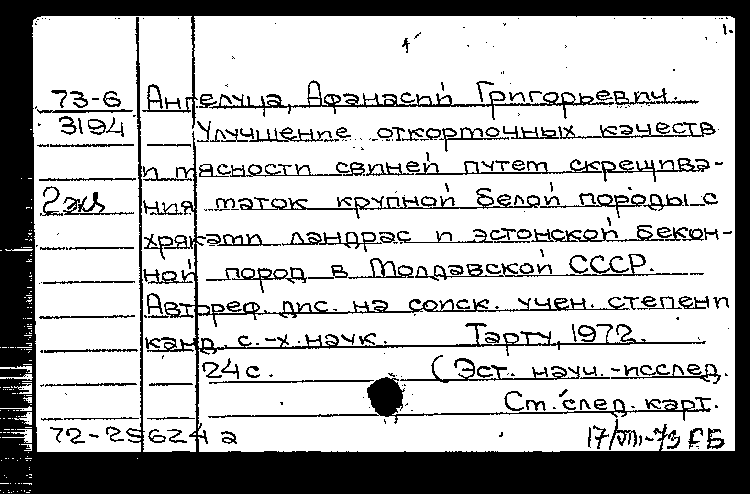 1.
73-6 Ангелуца, Афанасий Григорьевич.
3194 Улучшение откормочных качеств
и мясности свиней путем скрещива-
2 экз ния маток крупной белой породы с
хряками ландрас и эстонской бекон-
ной пород в Молдавской ССР.
Автореф. дис. на соиск. учен. степени
канд. с.-х. наук. Тарту, 1972.
24 с. (Эст. науч.-исслед.
См. след. карт.
72-29624 а 17/VIII-73 ГБ